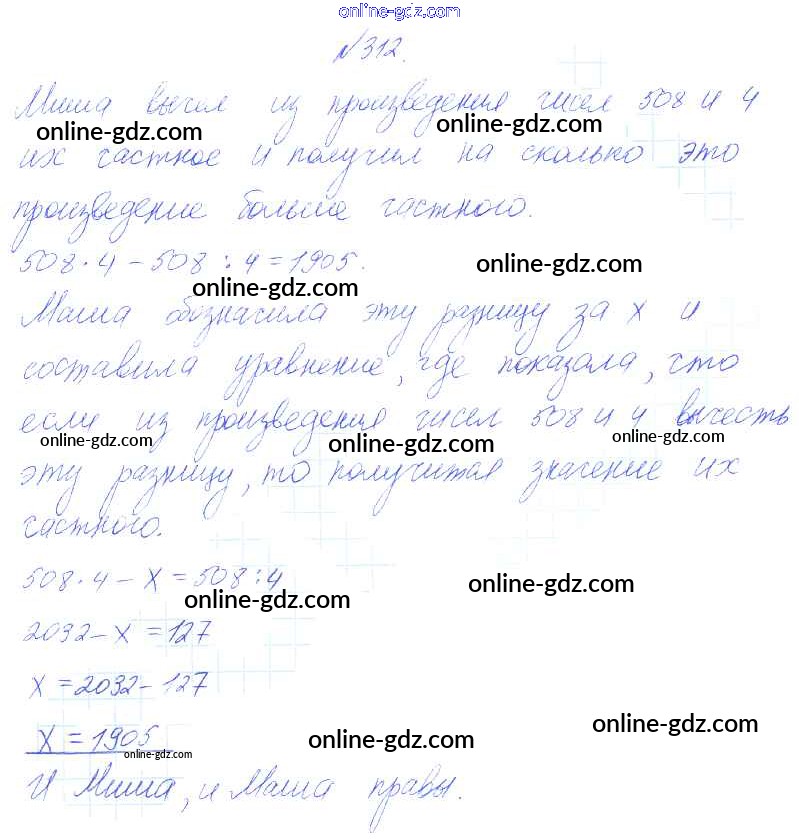 online-gdz.com
№312.
Миша вычел из произведения чисел 508 и 4
online-gdz.com
online-gdz.com
их частное и получил на сколько это
произведение больше частного.
508·4-508:4=1905.
online-gdz.com
online-gdz.com
Маша обозначила эту разницу за х и
составила уравнение, где показала, что
если из произведения чисел 508 и 4 вычесть
online-gdz.com
online-gdz.com
online-gdz.com
эту разницу, то получится значение их
частного.
508·4-х=508:4
online-gdz.com
online-gdz.com
2032-х=127
х=2032-127
х=1905
online-gdz.com
online-gdz.com
online-gdz.com
И Миша, и Маша правы.